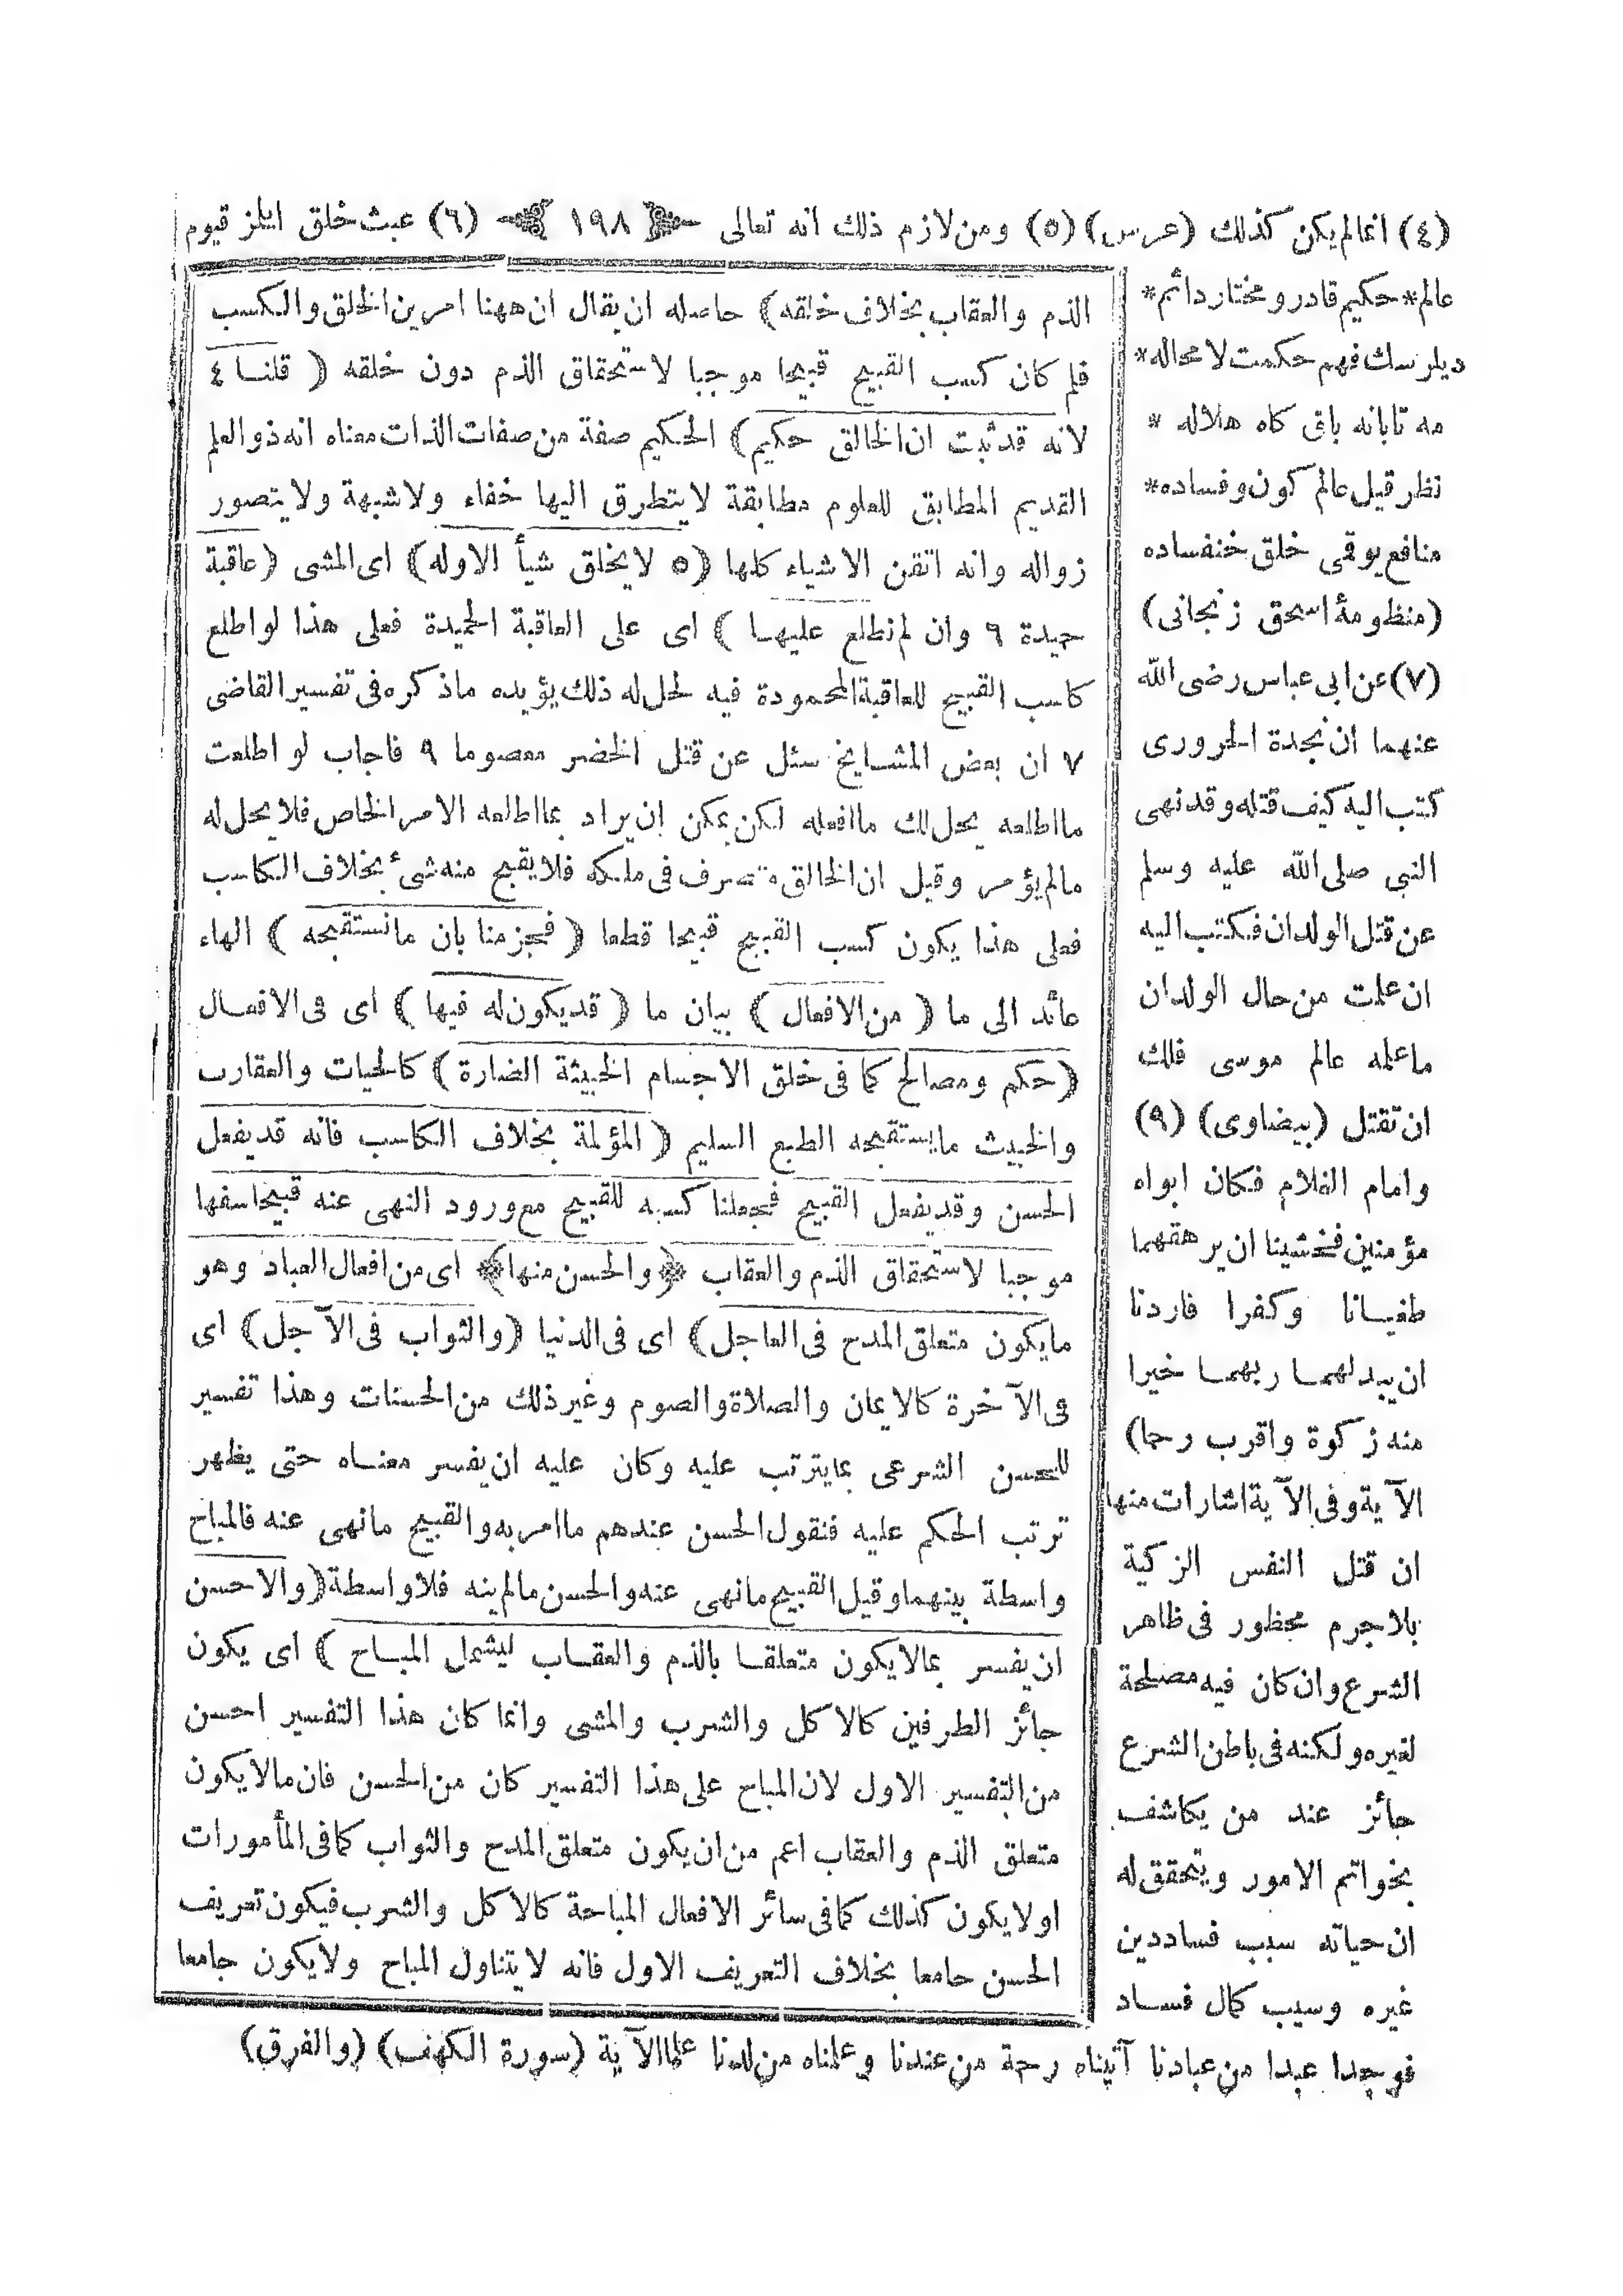 (٤) انمالم يكن كذلك (عرس) (٥) ومن لازم ذلك انه تعالى ١٩٨ (٦) عبث خلق ايلز قيوم
الذم والعقاب بخلاف خلقه) حاصله ان يقال ان ههنا امرين الخلق والكسب
فلم كان كسب القبيح قبيحا موجبا لاستحقاق الذم دون خلقه ( قلنا ٤
لانه قدثبت ان الخالق حكيم) الحكيم صفة من صفات الذات معناه انه ذو العلم
القديم المطابق للعلوم مطابقة لا يتطرق اليها خفاء ولا شبهة ولا يتصور
زواله وانه اتقن الاشياء كلها (٥ لا يخلق شيأ الاوله) اى المشى (عاقبة
حميدة ٦ وان لم نطلع عليها ) اى على العاقبة الحميدة فعلى هذا لو اطلع
كاسب القبيح للعاقبة المحمودة فيه لحل له ذلك يؤيده ماذكره فى تفسير القاضى
٧ ان بعض المشايخ سئل عن قتل الخضر معصوما ٩ فاجاب لو اطلعت
مااطلعه يحل لك ماافعله لكن يمكن ان يراد بمااطلعه الامر الخاص فلا يحل له
مالم يؤمر وقيل ان الخالق متصرف فى ملكه فلا يقبح منه شئ بخلاف الكاسب
فعلى هذا يكون كسب القبيح قبيحا قطعا ( فجزمنا بان مانستقبحه ) الهاء
عائد الى ما ( من الافعال ) بيان ما ( قديكون له فيها ) اى فى الافعال
(حكم ومصالح كما فى خلق الاجسام الخبيثة الضارة) كالحيات والعقارب
والخبيث مايستقبحه الطبع السليم ( المؤلمة بخلاف الكاسب فانه قديفعل
الحسن وقديفعل القبيح فجعلنا كسبه للقبيح مع ورود النهى عنه قبيحا سفها
موجبا لاستحقاق الذم والعقاب ﴿والحسن منها﴾ اى من افعال العباد وهو
مايكون متعلق المدح فى العاجل) اى فى الدنيا (والثواب فى الآجل) اى
فى الآخرة كالايمان والصلاة والصوم وغير ذلك من الحسنات وهذا تفسير
للحسن الشرعى بمايترتب عليه وكان عليه ان يفسر معناه حتى يظهر
ترتب الحكم عليه فنقول الحسن عندهم ماامر به والقبيح مانهى عنه فالمباح
واسطة بينهما وقيل القبيح مانهى عنه والحسن مالم ينه فلا واسطة (والاحسن
ان يفسر بمالايكون متعلقا بالذم والعقاب ليشمل المباح ) اى يكون
جائز الطرفين كالاكل والشرب والمشى وانما كان هذا التفسير احسن
من التفسير الاول لان المباح على هذا التفسير كان من الحسن فان مالايكون
متعلق الذم والعقاب اعم من ان يكون متعلق المدح والثواب كمافى المأمورات
اولايكون كذلك كمافى سائر الافعال المباحة كالاكل والشرب فيكون تعريف
الحسن جامعا بخلاف التعريف الاول فانه لا يتناول المباح ولا يكون جامعا
عالم* حكيم قادر و مختار دائم*
ديلرسك فهم حكمت لا محاله*
مه تابانه باق كاه هلاله *
نظر قيل عالم كون وفساده*
منافع يوقمى خلق خنفساده
(منظومۀ اسحق زنجانى)
(٧) عن ابى عباس رضى الله
عنهما ان نجدة الحرورى
كتب اليه كيف قتله وقد نهى
النبى صلى الله عليه وسلم
عن قتل الولدان فكتب اليه
ان علمت من حال الولدان
ماعلمه عالم موسى فلك
ان تقتل (بيضاوى) (٩)
وامام الغلام فكان ابواه
مؤمنين فخشينا ان يرهقهما
طغيانا وكفرا فاردنا
ان يبدلهما ربهما خيرا
منه زكوة واقرب رحما)
الآية وفى الآية اشارات منها
ان قتل النفس الزكية
بلا جرم محظور فى ظاهر
الشرع وان كان فيه مصلحة
لغيره ولكنه فى باطن الشرع
جائز عند من يكاشف
بخواتم الامور ويتحقق له
ان حياته سبب فساد دين
غيره وسبب كمال فساد
فوجدا عبدا من عبادنا آتيناه رحمة من عندنا وعلمناه من لدنا علما الآية (سورة الكهف) (والفرق)